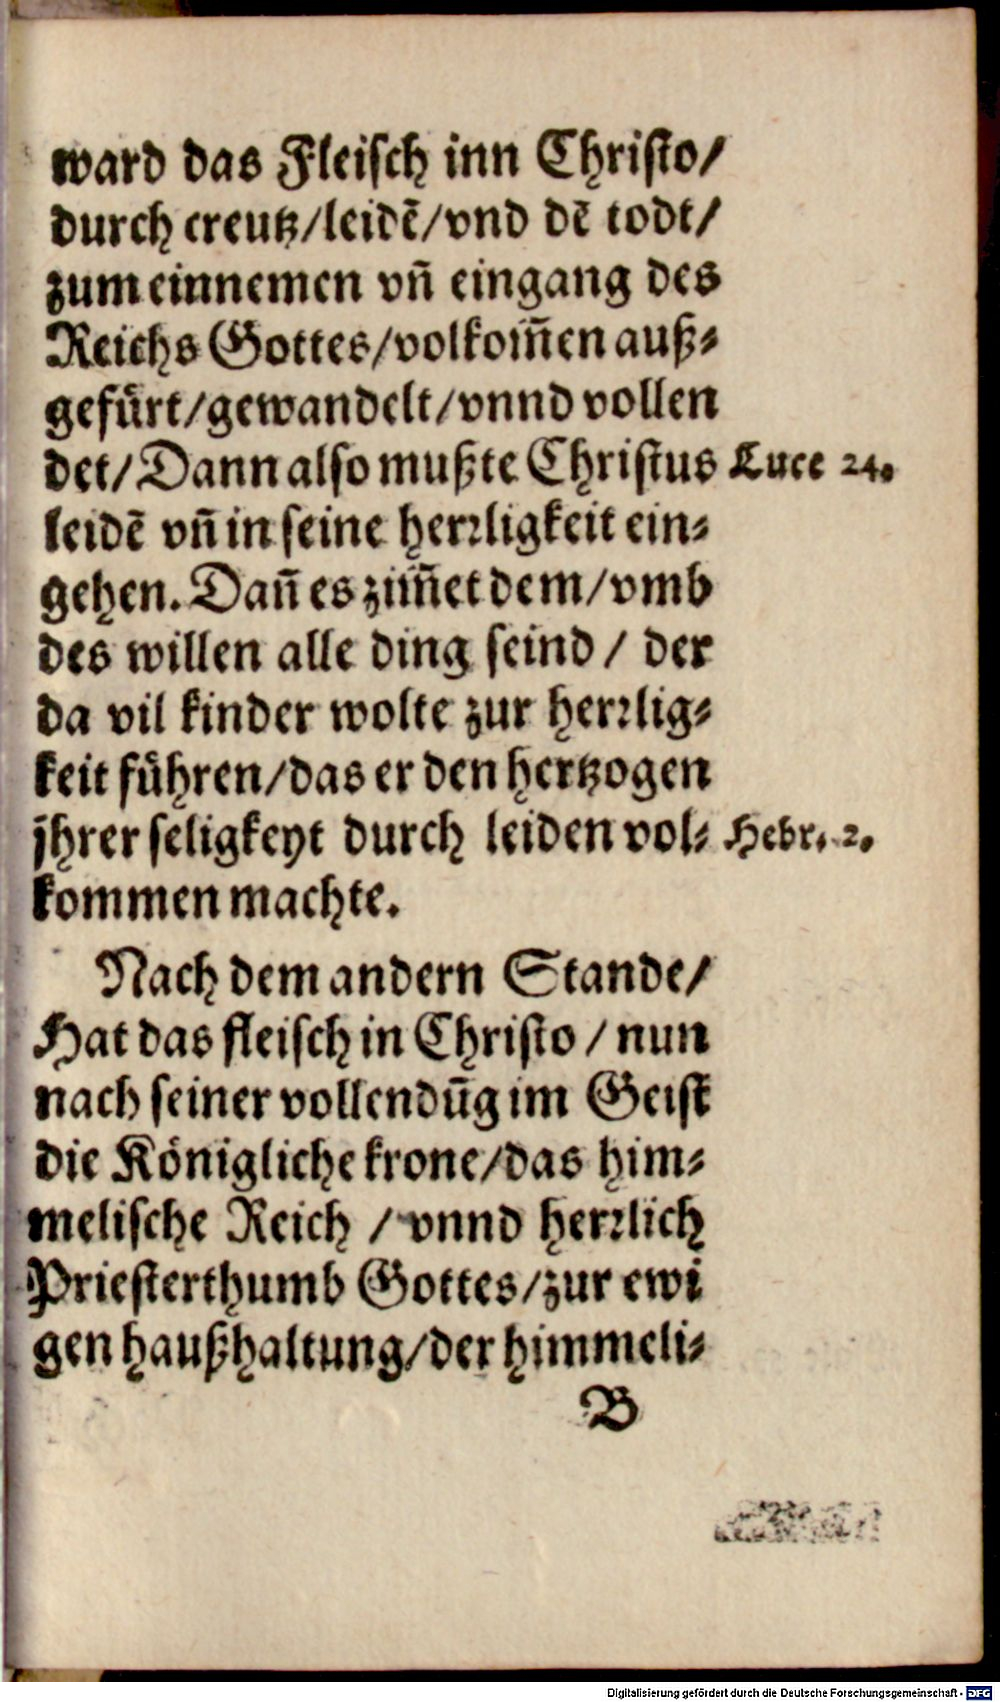 ward das Fleisch inn Christo/
durch creutz/leidē/vnd dē todt/
zum einnemen vñ eingang des
Reichs Gottes/volkom̃en auß⸗
gefürt/gewandelt/vnnd vollen
det/Dann also mußte Christus Luce 24.
leidē vñ in seine herꝛligkeit ein⸗
gehen. Dañ es zim̃et dem/vmb
des willen alle ding seind / der
da vil kinder wolte zur herꝛlig⸗
keit führen/das er den hertzogen
jhrer seligkeyt durch leiden vol⸗ Hebr. 2.
kommen machte.
Nach dem andern Stande/
Hat das fleisch in Christo / nun
nach seiner vollendūg im Geist
die Königliche krone/das him⸗
melische Reich / vnnd herꝛlich
Priesterthumb Gottes/zur ewi
gen haußhaltung/der himmeli⸗
B
Digitalisierung gefördert durch die Deutsche Forschungsgemeinschaft - DFG